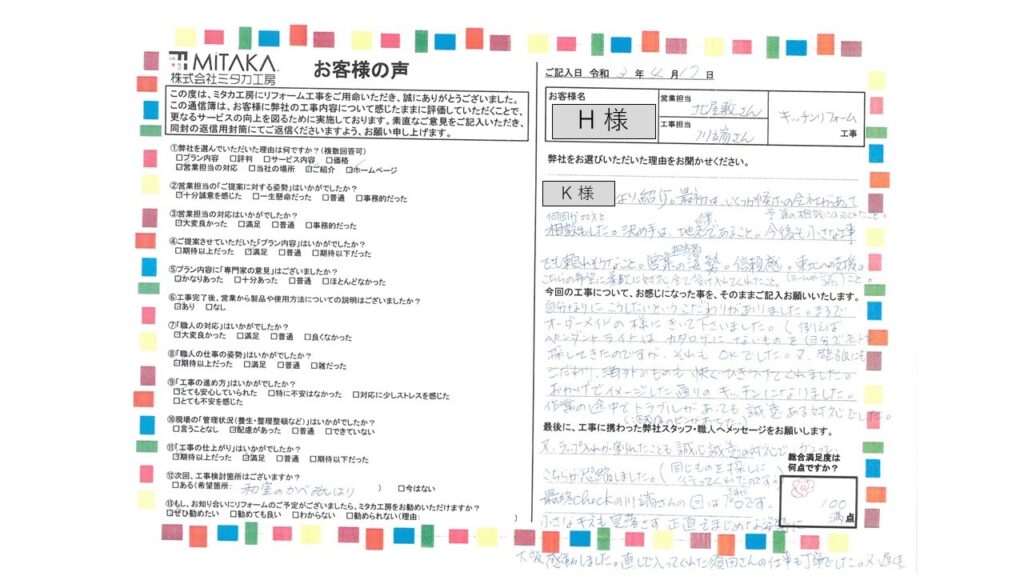 MiTAKA
株式会社ミタカ工房
お客様の声
この度は、ミタカ工房にリフォーム工事をご用命いただき、誠にありがとうございました。
この通信簿は、お客様に弊社の工事内容について感じたままに評価していただくことで、
更なるサービスの向上を図るために実施しております。素直なご意見をご記入いただき、
同封の返信用封筒にてご返信くださいますよう、お願い申し上げます。
①弊社を選んでいただいた理由は何ですか?(複数回答可)
□プラン内容 □評判 □サービス内容 □価格
☑営業担当の対応 □当社の場所 ☑ご紹介 ☑ホームページ
②営業担当の「ご提案に対する姿勢」はいかがでしたか?
☑十分誠意を感じた □一生懸命だった □普通 □事務的だった
③営業担当の対応はいかがでしたか?
☑大変良かった □満足 □普通 □事務的だった
④ご提案させていただいた「プラン内容」はいかがでしたか?
□期待以上だった ☑満足 □普通 □期待以下だった
⑤プラン内容に「専門家の意見」はございましたか?
☑かなりあった □十分あった □普通 □ほとんどなかった
⑥工事完了後、営業から製品や使用方法についての説明はございましたか?
☑あり □なし
⑦「職人の対応」はいかがでしたか?
☑大変良かった □満足 □普通 □良くなかった
⑧「職人の仕事の姿勢」はいかがでしたか?
☑期待以上だった □満足 □普通 □雑だった
⑨「工事の進め方」はいかがでしたか?
□とても安心していられた □特に不安はなかった □対応に少しストレスを感じた
□とても不安を感じた
⑩現場の「管理状況(養生・整理整頓など)」はいかがでしたか?
□言うことなし ☑配慮があった □普通 □できていない
⑪「工事の仕上がり」はいかがでしたか?
☑期待以上だった ☑満足 □普通 □期待以下だった
⑫次回、工事検討箇所はございますか?
□ある(希望箇所: 和室のかべ紙はり ) □今はない
⑬もし、お知り合いにリフォームのご予定がございましたら、ミタカ工房をお勧めいただけますか?
□ぜひ勧めたい □勧めても良い □わからない □勧められない(理由: )
ご記入日 令和 2 年 4 月 17 日
お客様名
H 様
営業担当 北屋敷さん
工事担当 川端さん
キッチンリフォーム
工事
弊社をお選びいただいた理由をお聞かせください。
K 様 より紹介。最初は、いくつか候補の会社があって
相談しました。決め手は、地元であること。今後も小さな工事
でも頼れそうなこと。営業の姿勢。信頼感。東北への支援。
今回の工事について、お感じになった事を、そのままご記入お願いいたします。
自分なりにこうしたいというこだわりがありました。まるで
オーダーメイドの様にきいて下さいました。(例えば
ペンダントライトは カタログにないものを自分でネットで
探してきたのですが、それも OKでした。又、壁紙にも
こだわり、海外のものも快くひきうけてくれました。)
おかげでイメージした通りの キッチンになりました。
作業の途中でトラブルがあっても 誠意ある対応でした。
最後に、工事に携わった弊社スタッフ・職人へメッセージをお願いします。
こちらが恐縮しました。(同じものを探しに行ってくれたのです。)
最終checkの川端さんの目はプロです。
小さなキズも見落とさず 正直でまじめな姿勢に
大変感動しました。直しで入ってくれた須田さんの仕事も丁寧でした。
総合満足度は
何点ですか?
100
満点